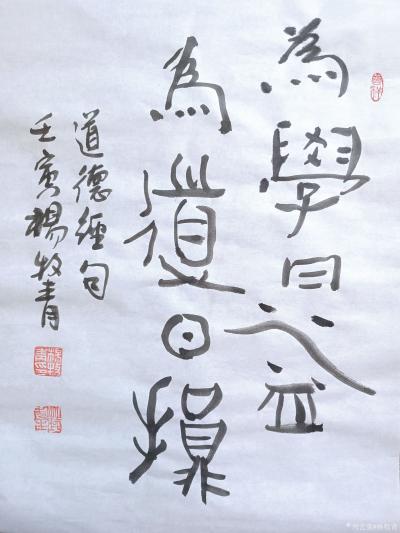 為學日益
為道日損
道德經句
壬寅楊牧青